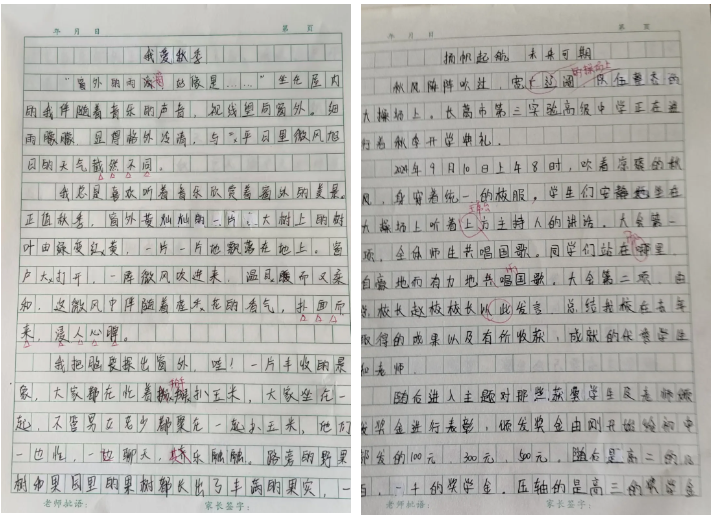 年 月 日 第 页
我爱秋季
"窗外的雨滴 也像是……"坐在屋内
的我伴随着音乐的声音，视线望向窗外。细
雨朦朦，显得格外凄清，与 平日里微风旭
日的天气截然不同。
我总是喜欢听着音乐欣赏着窗外的美景。
正值秋季，窗外黄灿灿的一片，大树上的树
叶由绿变红黄，一片一片地飘落在地上。窗
户大打开，一阵微风吹进来，温暖而又柔
和，这微风中伴随着桂花的香气，扑面而
来，沁人心脾。
我把脑袋探出窗外，哇！一片丰收的景
象，大家都在忙着掰玉米，大家坐在一
起，不管男女老少都聚在一起扒玉米，他们
一边忙，一边聊天，其乐融融。路旁的野果
树和果园里的果树都长出了丰满的果实，一
老师批语： 家长签字：
年 月 日 第 页
扬帆起航 未来可期
秋风阵阵吹过，宽广辽阔 队伍整齐的
大操场上，长葛市第三实验高级中学正在进
行着秋季开学典礼。
2024年9月10日上午8时，吹着凉爽的秋
风，身穿着统一的校服，学生们安静地坐在
大操场上听着上方主持人的讲话。大会第一
项，全体师生共唱国歌。同学们站在哪里，
自豪地而有力地共唱国歌。大会第二项，由
赵校长 校长以此发言，总结我校在去年
取得的成果以及有所收获、成就的优秀学生
和老师。
随后进入主题对那些获奖学生及老师颁
发奖金进行表彰，颁发奖金由刚开始给初中
部发的100元、300元、500元，随后是高二的
一千的奖学金，压轴的是高三的奖学金
老师批语： 家长签字：